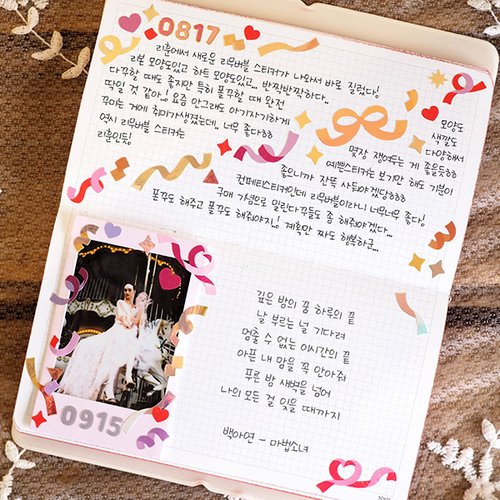 0817
리훈에서 새로운 리무버블 스티커가 나와서 바로 질렀다!
리본 모양도있고 하트 모양도있고.. 반짝반짝하다..
다꾸할 때도 좋지만 특히 폴꾸할 때 완전
딱일 것 같아! 요즘 안그래도 아기자기하게
꾸미는 거에 취미가생겼는데.. 너무 좋다ㅎㅎ
역시 리무버블 스티커는
리훈인듯!
모양도
색깔도
다양해서
몇장 쟁여두는 게 좋을듯ㅎㅎ
예쁜스티커는 보기만 해도 기분이
좋으니까 잔뜩 사둬야겠당ㅎㅎㅎ
컨페티스티커인데 리무버블이라니 너무너무 좋다!
구매 기념으로 밀린다꾸들도 좀 해줘야겠다...
폴꾸도 해주고 폰꾸도 해줘야지! 계획만 짜도 행복하군...
깊은 밤의 꿈 하루의 끝
날 부르는 널 기다려
멈출 수 없는 이시간의 끝
아픈 내 맘을 꼭 안아줘
푸른 밤 새벽을 넘어
나의 모든 걸 잊을 때까지
백아연 - 마법소녀
0915